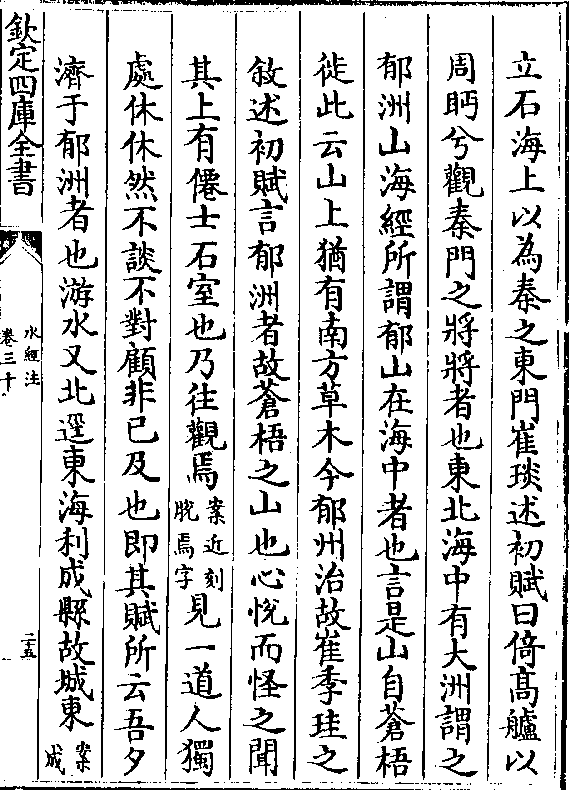 立石海上以為秦之東門崔琰述初賦曰倚高艫以
周眄兮觀秦門之將將者也東北海中有大洲謂之
郁洲山海經所謂郁山在海中者也言是山自蒼梧
徙此云山上猶有南方草木今郁州治故崔季珪之
敘述初賦言郁洲者故蒼梧之山也心悅而怪之聞
其上有僊士石室也乃往觀焉案近刻脫焉字見一道人獨
處休休然不談不對顧非已及也即其賦所云吾夕
濟于郁洲者也游水又北逕東海利成縣故城東案成
欽定四庫全書
水經注
卷三十
二五